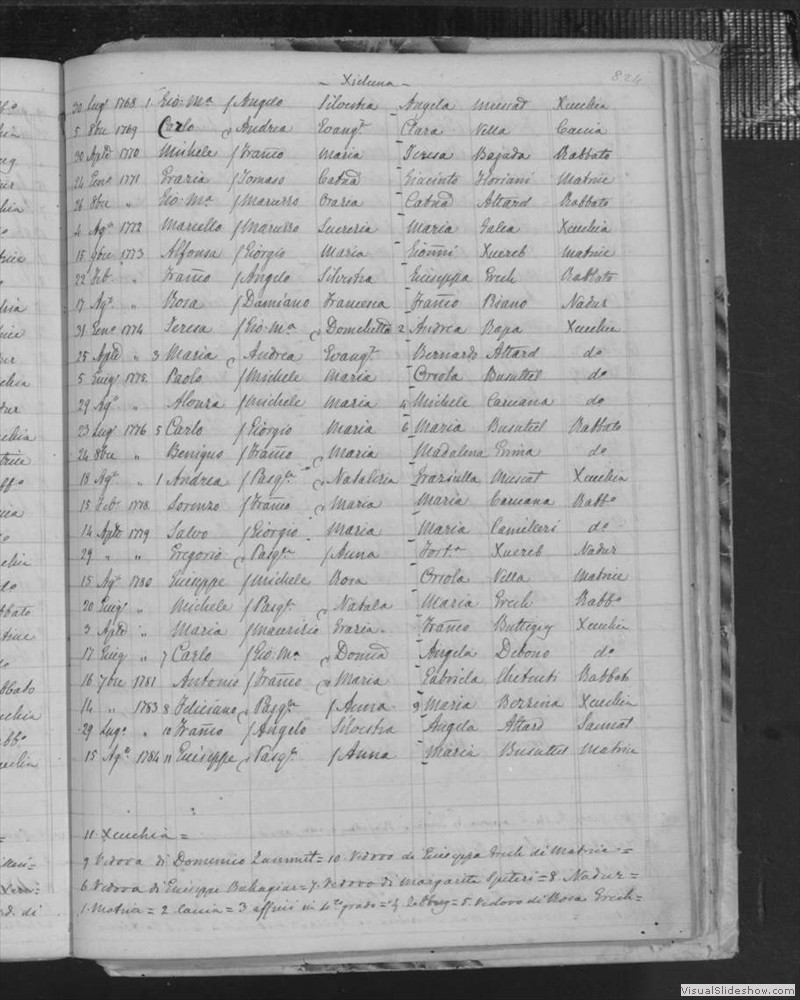 - Xicluna -
824
20 Lug° 1768 1 Gio: Ma ƒ Angelo Silvestra - Angela Muscat Xeuchia
5 8bre 1769 Carlo Andrea Evangta Clara Vella Caccia
20 Aple 1770 Michele ƒ Franco Maria Teresa Bagada Rabbato
24 Gen° 1771 Grazia ƒ Tomaso Catna Giacinto Floriani Matrice
26 8bre " Gio: Ma ƒ Maruzzo Grazia Catna Attard Rabbato
4 Ag° 1772 Marcello ƒ Maruzzo Lucrezia Maria Galea Xeuchia
15 9bre 1773 Alfonsa ƒ Giorgio Maria - Gionni Xuereb Matrice
22 Feb° " Franco ƒ Angelo Silvestra Giuseppa Grech Rabbato
17 Ag° " Rosa ƒ Damiano Francesca ƒ Franco Piano Nadur
31 Gen° 1774 Teresa ƒ Gio: Ma Domchetta 2 Andrea Bapa Xeuchia
25 Aple " 3 Maria Andrea Evangta Bernardo Attard do
5 Giug° 1775 Paolo ƒ Michele Maria Orsola Busuttel do
29 Ag° " Alonza ƒ Michele Maria 4 Michele Caruana do
23 Lug° 1776 5 Carlo ƒ Giorgio Maria 6 Maria Busuttel Rabbato
24 8bre " Benigno ƒ Franco Maria Madalena do
18 Ag° " 1 Andrea ƒ Pasqle Natalizia Graziulla Muscat Xeuchia
15 Feb° 1778 Lorenzo ƒ Franco Maria Maria Caruana Rabb°
14 Aple 1779 Salvo ƒ Giorgio Maria Maria Camilleri do
29 " " Gregorio Pasqle ƒ Anna Fortta Xuereb Nadur
15 Ag° 1780 Giuseppe ƒ Michele Rosa Orsola Vella Matrice
20 Giug° " Michele ƒ Pasqle Natala Maria Grech Rabb°
3 Aple " Maria ƒ Maurizio Grazia Franco Buttigieg Xeuchia
17 Giug " 7 Carlo ƒ Gio: Ma Domca Angela Debono do
16 7bre 1781 Antonio ƒ Franco Maria Gabriela Rabbato
14 " 1783 8 Feliciano Pasqle ƒ Anna 9 Maria Bezzina Xeuchia
29 Lug° " 10 Franco ƒ Angelo Silvestra Angela Attard Sannat
15 Ag° 1784 11 Giuseppe Pasqle ƒ Anna Maria Busuttel Matrice
11 Xeuchia =
9 Vedova di Domenico Zammit = 10 Vedovo di Giuseppa Grech di Matrice =
6 Vedova di Giuseppe Buhagiar = 7 Vedovo di Margarita Spiteri = 8 Nadur =
1 Matrice = 2 Caccia = 3 affini in 4to grado = 4 Zebbug = 5 Vedovo di Rosa Grech =
VisualSlideshow.com